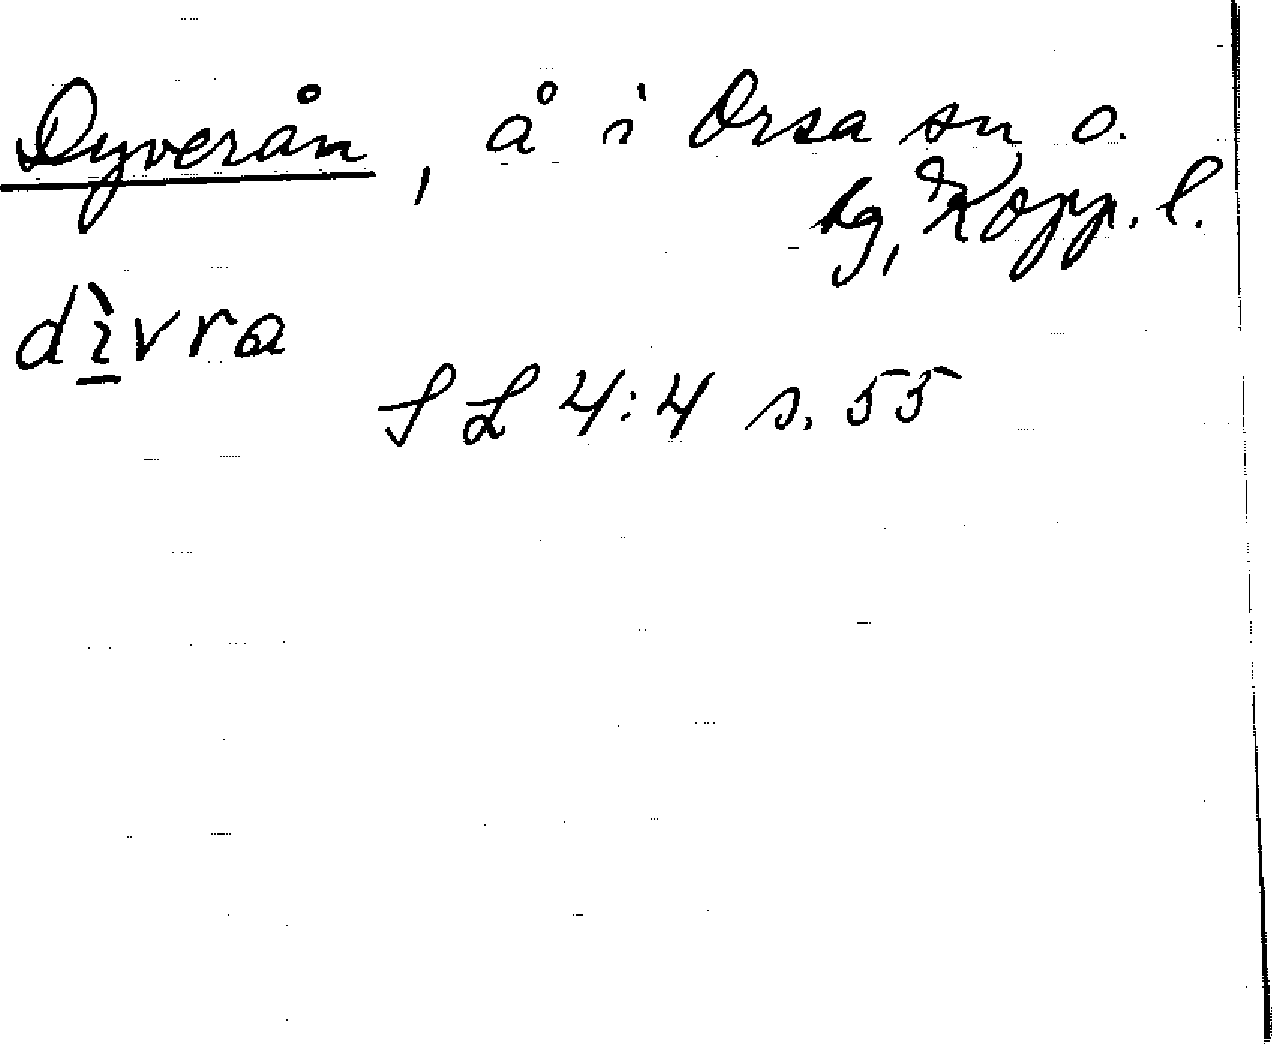 Dyverån, å i Orsa sn o.
hg, Kopp. l.
dìvra
SL 4:4 s. 55